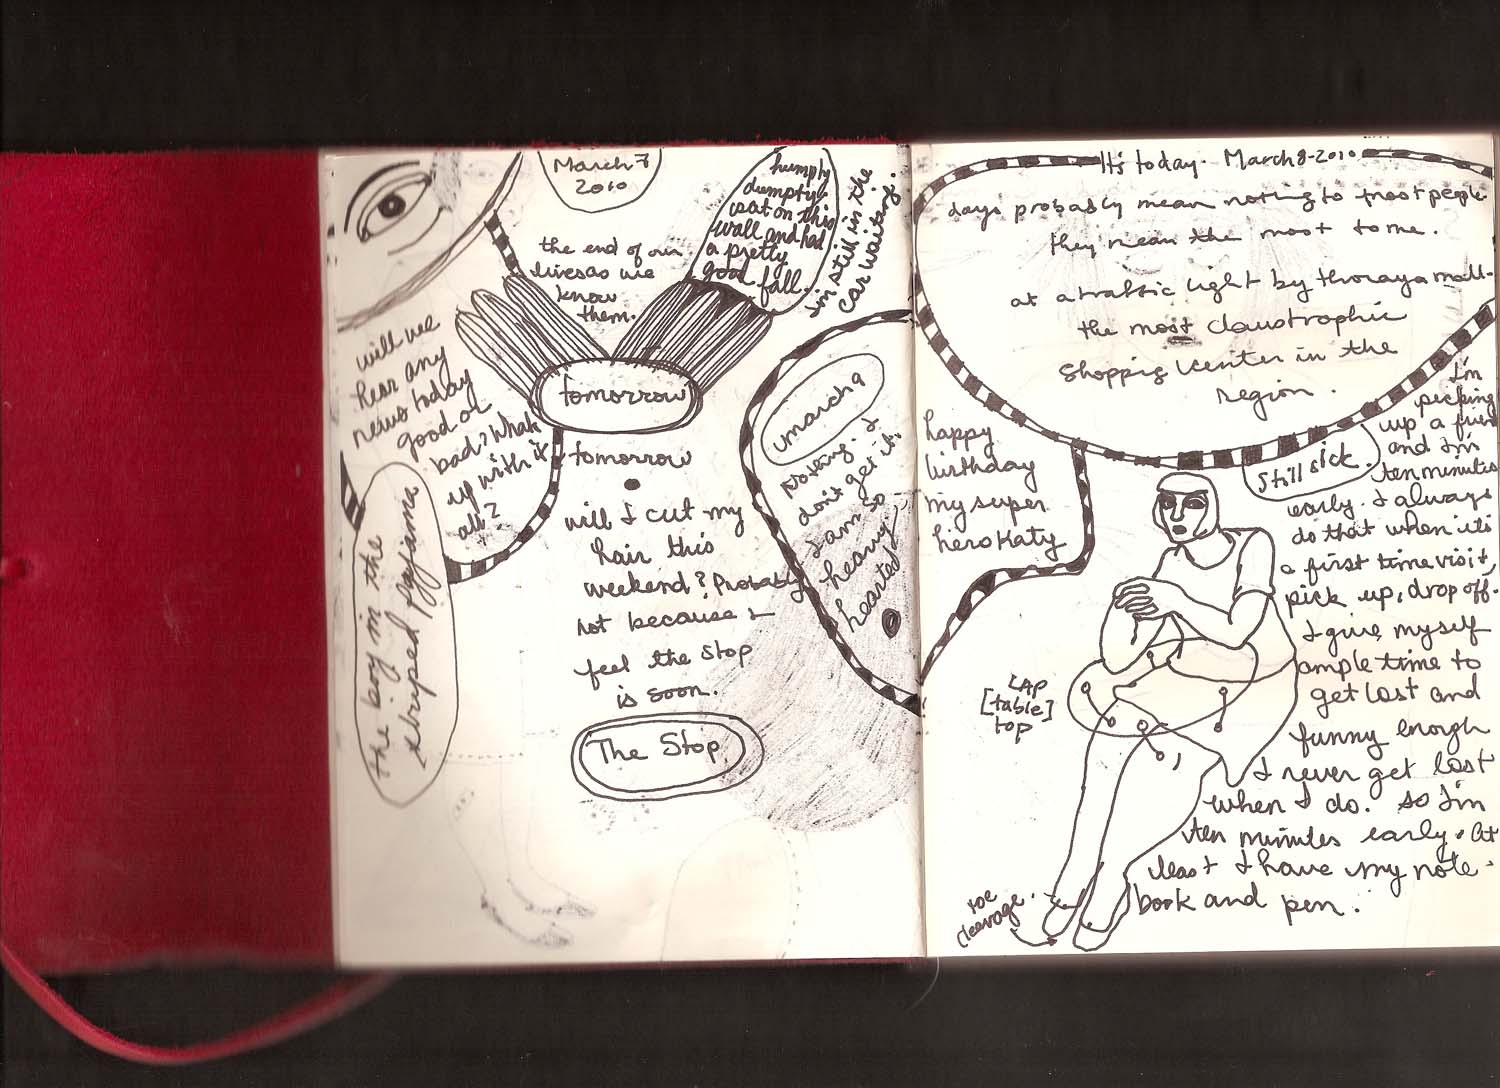 March 7
2010
the end of our
lives as we
know
them.
humpty
dumpty
sat on this
wall and had
a pretty
good fall.
im still in the
car waiting.
will we
hear any
news today
good or
bad? Whats
up with it
all?
the boy in the
striped pyjama
tomorrow
tomorrow
will I cut my
hair this
weekend? Probably
not because I
feel the stop
is soon.
The Stop.
march 9
Nothing. I
don't get it.
I am so
heavy
hearted
It's today. March 8-2010
days probably mean nothing to most people
they mean the most to me.
at a traffic light by thoraya mall-
the most claustrophic
shoppig center in the
region.
happy
birthday
my super
hero Katy
Still sick.
I'm
picking
up a friend
and I'm
ten minutes
early. I always
do that when its
a first time visit,
pick up, drop off.
I give myself
ample time to
get lost and
funny enough
I never get lost
when I do. So I'm
ten minutes early. At
least I have my note-
book and pen.
LAP
[table]
top
toe
cleavage.